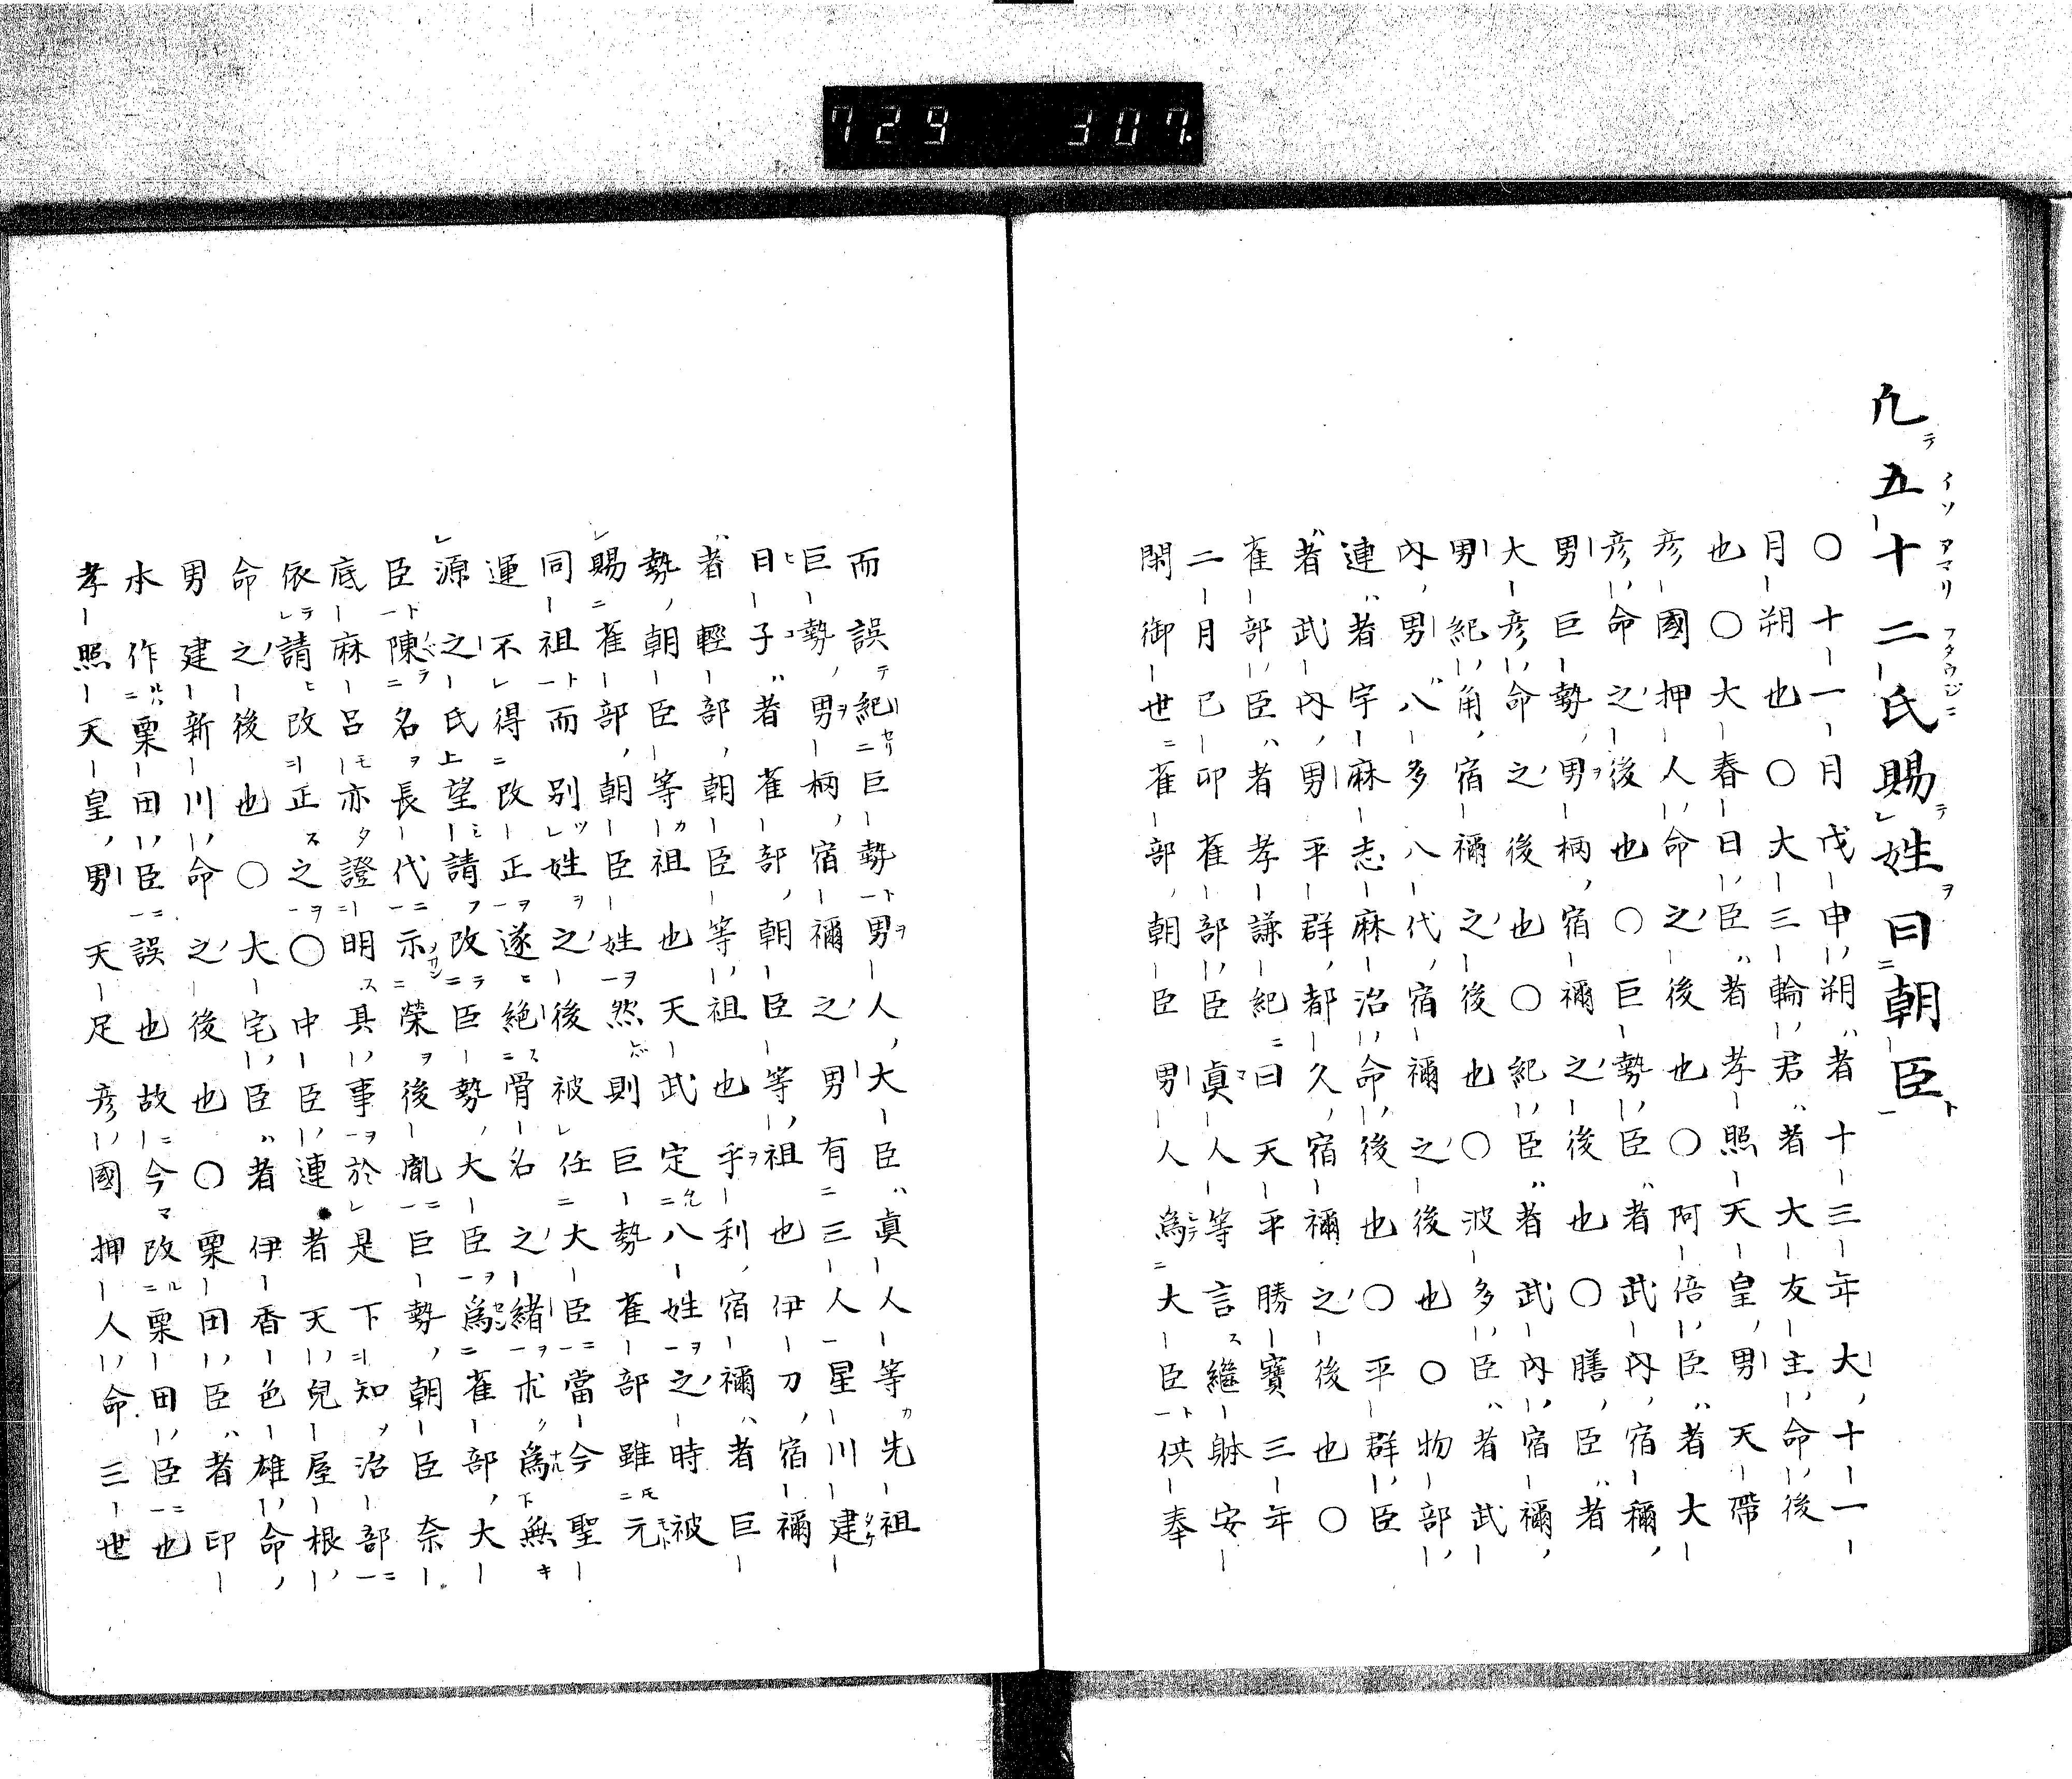 729 307
凢五十二氏賜姓曰朝臣
〇十一月戊申朔者十三年大十一
月朔也〇大三輪君者大友主命後
也〇大春日臣者孝照天皇男天帶
彦國押人命之後也〇阿倍臣者大
彦命之後也〇巨勢臣者武内宿禰
男巨勢男柄宿禰之後也〇膳臣者
大彦命之後也〇紀臣者武内宿禰
男紀角宿禰之後也〇波多臣者武
内男八多八代宿禰之後也〇物部
連者宇麻志麻治命後也〇平群臣
者武内男平群都久宿禰之後也〇
雀部臣者孝謙紀曰天平勝寶三年
二月已卯雀部臣眞人等言継躰安
閑御世雀部朝臣男人爲大臣供奉
而誤紀巨勢男人大臣眞人等先祖
巨勢男柄宿禰之男有三人星川建
日子者雀部朝臣等祖也伊刀宿禰
者輕部朝臣等祖也乎利宿禰者巨
勢朝臣等祖也天武定八姓之時被
賜雀部朝臣姓然則巨勢雀部雖元
同祖而別姓之後被任大臣當今聖
運不得改正遂絶骨名之緒永爲無
源之氏望請改巨勢大臣爲雀部大
臣陳名長代示榮後胤巨勢朝臣奈
底麻呂亦證明其事於是下知治部
依請改正之〇中臣連者天兒屋根
命之後也〇大宅臣者伊香色雄命
男建新川命之後也〇粟田臣者印
本作栗田臣誤也故今改粟田臣也
孝照天皇男天足彦國押人命三世